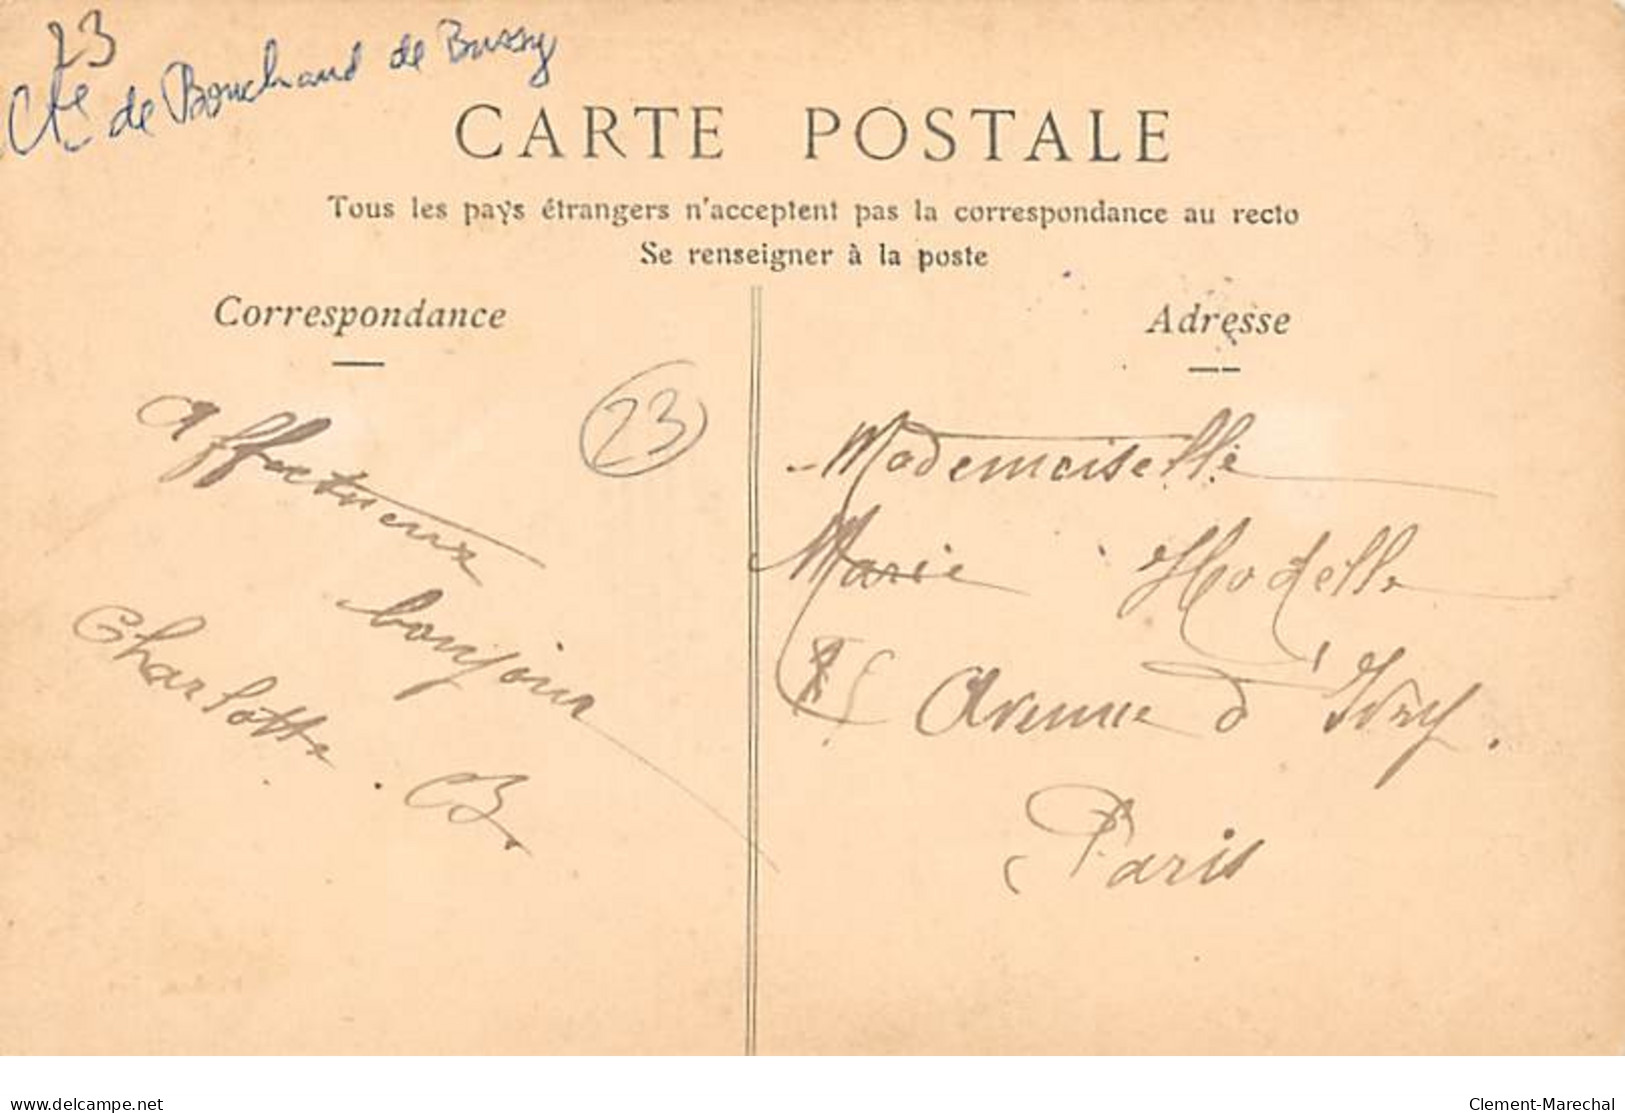 23
Cte de Bouchaud de Bussy
CARTE POSTALE
Tous les pays étrangers n'acceptent pas la correspondance au recto
Se renseigner à la poste
Correspondance
Adresse
23
Affectueux
bonjour
Charlotte. B.
Mademoiselle
Marie Hodelle
Avenue d'Ivry.
Paris
www.delcampe.net
Clement-Marechal